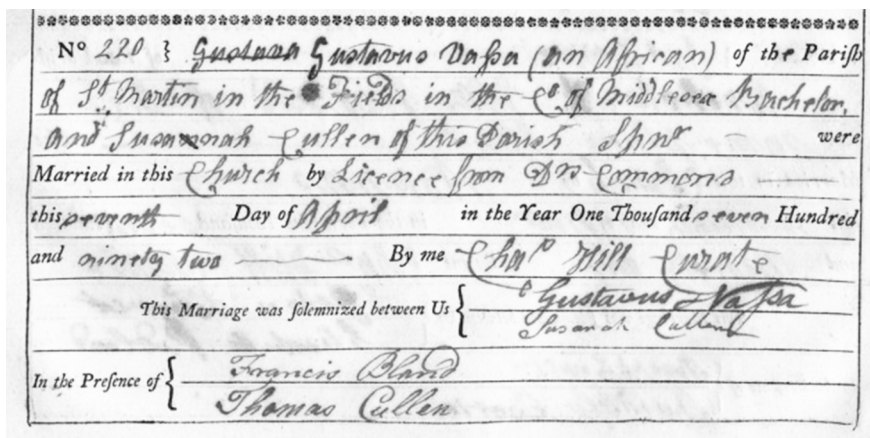 Nº 220 } Gustava Gustavus Vaſsa (an African) of the Pariſh
of St Martin in the Fields in the Co of Middlesex Bachelor,
and Susannah Cullen of this Parish Spnr were
Married in this Church by Licence from Drs Commons
this seventh Day of April in the Year One Thouſand seven Hundred
and ninety two By me Chas Hill Curate
This Marriage was ſolemnized between Us { Gustavus Vaſsa
Susanah Cullen
In the Preſence of { Francis Bland
Thomas Cullen